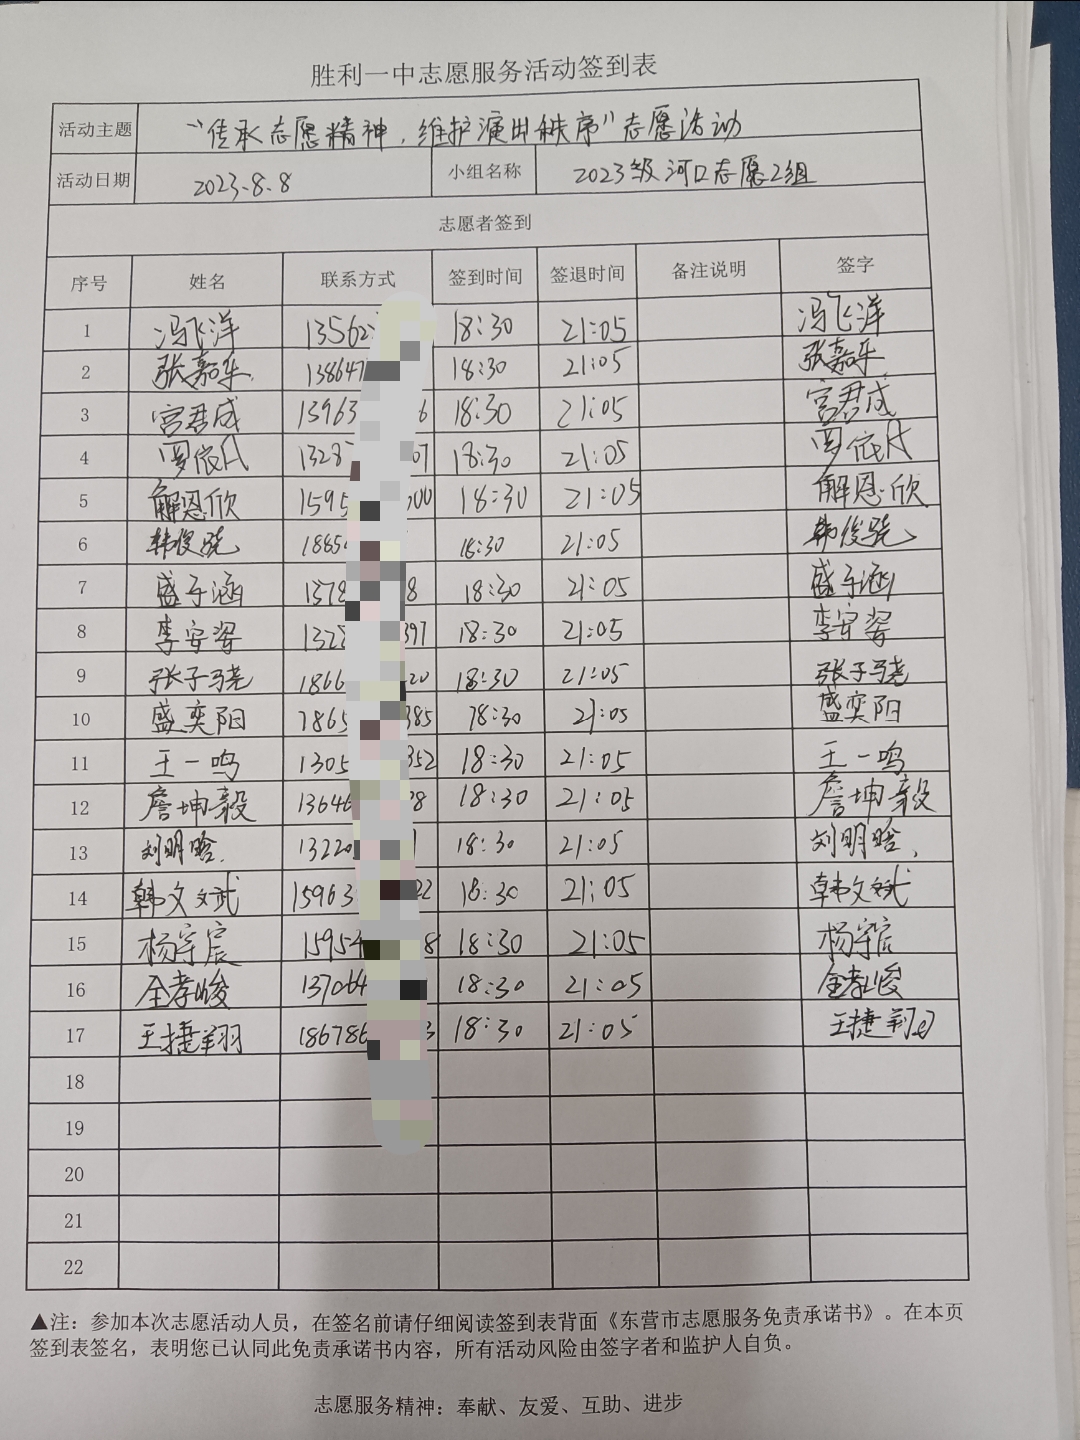 胜利一中志愿服务活动签到表
活动主题 “传承志愿精神，维护演出秩序”志愿活动
活动日期 2023.8.8 小组名称 2023级河口志愿2组
志愿者签到
序号 姓名 联系方式 签到时间 签退时间 备注说明 签字
1 冯飞洋 13562 18:30 21:05 冯飞洋
2 张嘉乐 13864 18:30 21:05 张嘉乐
3 宫君成 13963 6 18:30 21:05 宫君成
4 罗依凡 1328 07 18:30 21:05 罗依凡
5 解恩欣 1595 00 18:30 21:05 解恩欣
6 韩俊骁 1885 18:30 21:05 韩俊骁
7 盛子涵 1378 8 18:30 21:05 盛子涵
8 李安姿 132 397 18:30 21:05 李安姿
9 张子骁 1866 20 18:30 21:05 张子骁
10 盛奕阳 1865 385 18:30 21:05 盛奕阳
11 王一鸣 1305 352 18:30 21:05 王一鸣
12 詹坤毅 1364 8 18:30 21:05 詹坤毅
13 刘明晗 1322 1 18:30 21:05 刘明晗
14 韩文斌 15963 22 18:30 21:05 韩文斌
15 杨宇宸 1595 8 18:30 21:05 杨宇宸
16 全孝峻 13706 18:30 21:05 全孝峻
17 王捷翔 186786 3 18:30 21:05 王捷翔
18
19
20
21
22
▲注：参加本次志愿活动人员，在签名前请仔细阅读签到表背面《东营市志愿服务免责承诺书》。在本页
签到表签名，表明您已认同此免责承诺书内容，所有活动风险由签字者和监护人自负。
志愿服务精神：奉献、友爱、互助、进步